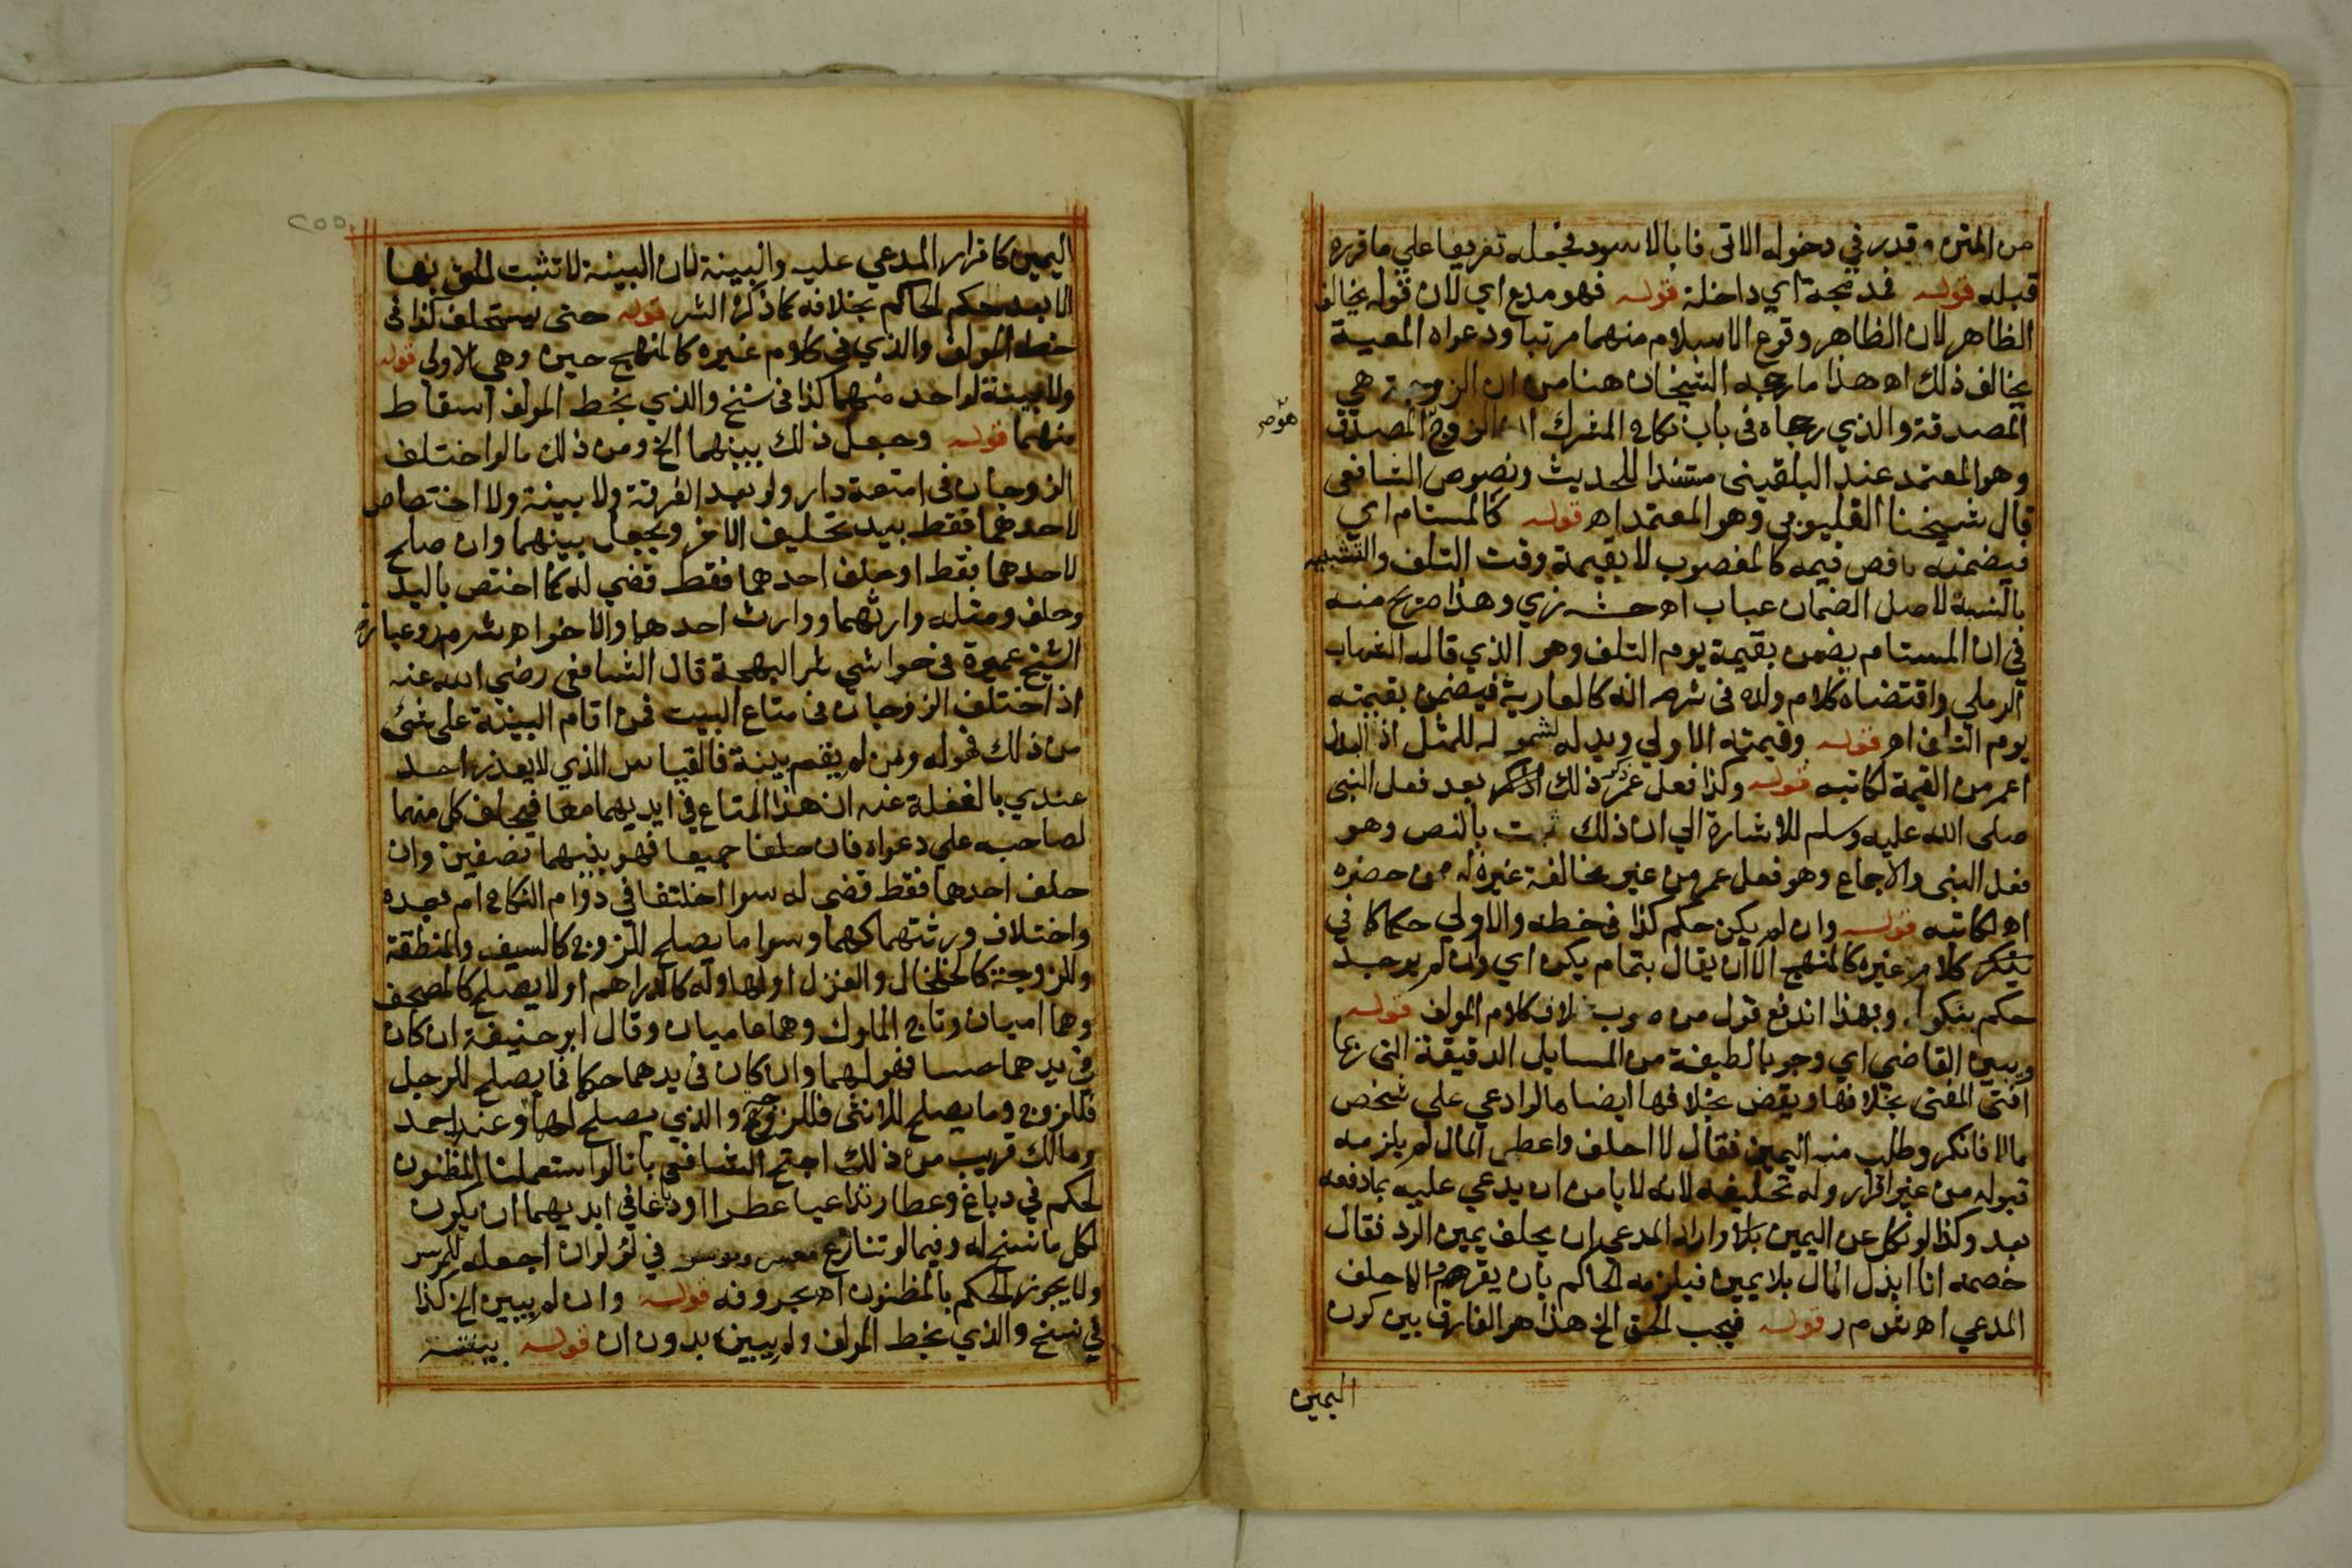 من المتن وقدر في دخوله الاتى فا بالاسود فجعله تفريعا علي ما قرره
قبله قوله فمدمجة اي داخلة قوله فهو مدع اي لان قوله يخالف
الظاهر لان الظاهر وقوع الاسلام منهما مرتبا ودعواه المعية
يخالف ذلك اه هذا ما رجحه الشيخان هنا من ان الزوجة هي
المصدقة والذي رجحاه في باب نكاح المشرك ان الزوج المصدق
وهو المعتمد عند البلقيني مستندا للحديث ونصوص الشافعي
قال شيخنا القليوبي وهو المعتمد اه قوله كالمستام اي
فيضمنه باقصي قيمه كالمغصوب لا بقيمة وقت التلف والتشبيه
بالنسبة لاصل الضمان عباب اه حشـ زي وهذا صريح منه
في ان المستام يضمن بقيمة يوم التلف وهو الذي قاله الشهاب
الرملي واقتضاه كلام ولده في شرحه انه كالعارية فيضمن بقيمته
يوم التلف اه قوله وقيمته الاولي وبدله لشموله للمثل اذ البدل
اعم من القيمة لكاتبه قوله وكذا فعل عمر ذكر ذلك بعد فعل النبى
صلى الله عليه وسلم للاشارة الي ان ذلك ثبت بالنص وهو
فعل النبى والاجماع وهو فعل عمر من غير مخالفة غيره له ممن حضره
اه لكاتبه قوله وان لم يكن حكم كذا في خطه والاولي حكما كما في
كلام غيره كالمنهج الا ان يقال بتمام يكن اي وان لم يوجد
حكم بنكول وبهذا اندفع قول من صوب خلاف كلام المولف قوله
ويبين القاضي اي وجوبا لطيفة من المسايل الدقيقة التي ربما
افتى المفتى بخلافها ويقض بخلافها ايضا ما لو ادعي علي شخص
مالا فانكر وطلب منه اليمين فقال لا احلف واعطى المال لم يلزمه
قبوله من غير اقرار وله تحليفه لانه لا يامن ان يدعي عليه بما دفعه
بعد وكذا لو نكل عن اليمين واراد المدعي ان يحلف يمين الرد فقال
خصمه انا ابذل المال بلا يمين فيلزمه الحاكم بان يقر والا حلف
المدعي اه شرم ر قوله فيجب الحق الخ هذا هو الفارق بين كون
اليمين
اليمين كاقرار المدعي عليه والبينة لان البينة لا تثبت الحق بها
الا بعد حكم الحاكم بخلافه كما ذكره الشر قوله حتى يستحلف كذا في
خط المولف والذي في كلام غيره كالمنهج حين وهي الاولى قوله
ولا بينة لواحد منهما كذا في نسخ والذي بخط المولف اسقاط
منهما قوله وجعل ذلك بينهما الخ ومن ذلك ما لو اختلف
الزوجان في امتعة دار ولو بعد الفرقة ولا بينة ولا اختصاص
لاحدهما فقط بيد تحليف الاخر ويجعل بينهما وان صلح
لاحدهما فقط او حلف احدهما فقط قضي له كما اختص باليد
وحلف ومثله وارثهما ووارث احدهما والاخر اه شرم ر وعبارة
الشيخ عميرة في حواشي شرح البهجة قال الشافعي رضي الله عنه
اذا اختلف الزوجان في متاع البيت فمن اقام البينة على شئ
من ذلك فهو له ومن لم يقم بينة فالقياس الذي لا يعذر احد
عندي بالغفلة عنه ان هذا المتاع في ايديهما معا فيحلف كل منهما
لصاحبه علي دعواه فان حلفا جميعا فهو بينهما نصفين وان
حلف احدهما فقط قضي له سوا اختلفا في دوام النكاح ام بعده
واختلاف ورثتهما كهما وسوا ما يصلح للزوج كالسيف والمنطقة
وللزوجة كالخلخال والغزل اولها وله كالدراهم او لا يصلح كالمصحف
وهما اميان وتاج الملوك وهما عاميان وقال ابو حنيفة ان كان
في يدهما حسا فهو لهما وان كان في يدهما حكما فما يصلح للرجل
فللزوج وما يصلح للانثى فللزوجة والذي يصلح لهما وعند احمد
ومالك قريب من ذلك احتج الشافعي بانا لو استعملنا الظنون
لحكم في دباغ وعطار تداعيا عطرا او دباغا في ايديهما ان يكون
لكل ما نسخ له وفيما لو تنازع معسر وموسر في لولو ان اجعله للموسر
ولا يجوز الحكم بالظنون اه بحروفه قوله وان لم يبين الخ كذا
في نسخ والذي بخط المولف ولم يبين بدون ان قوله بينته